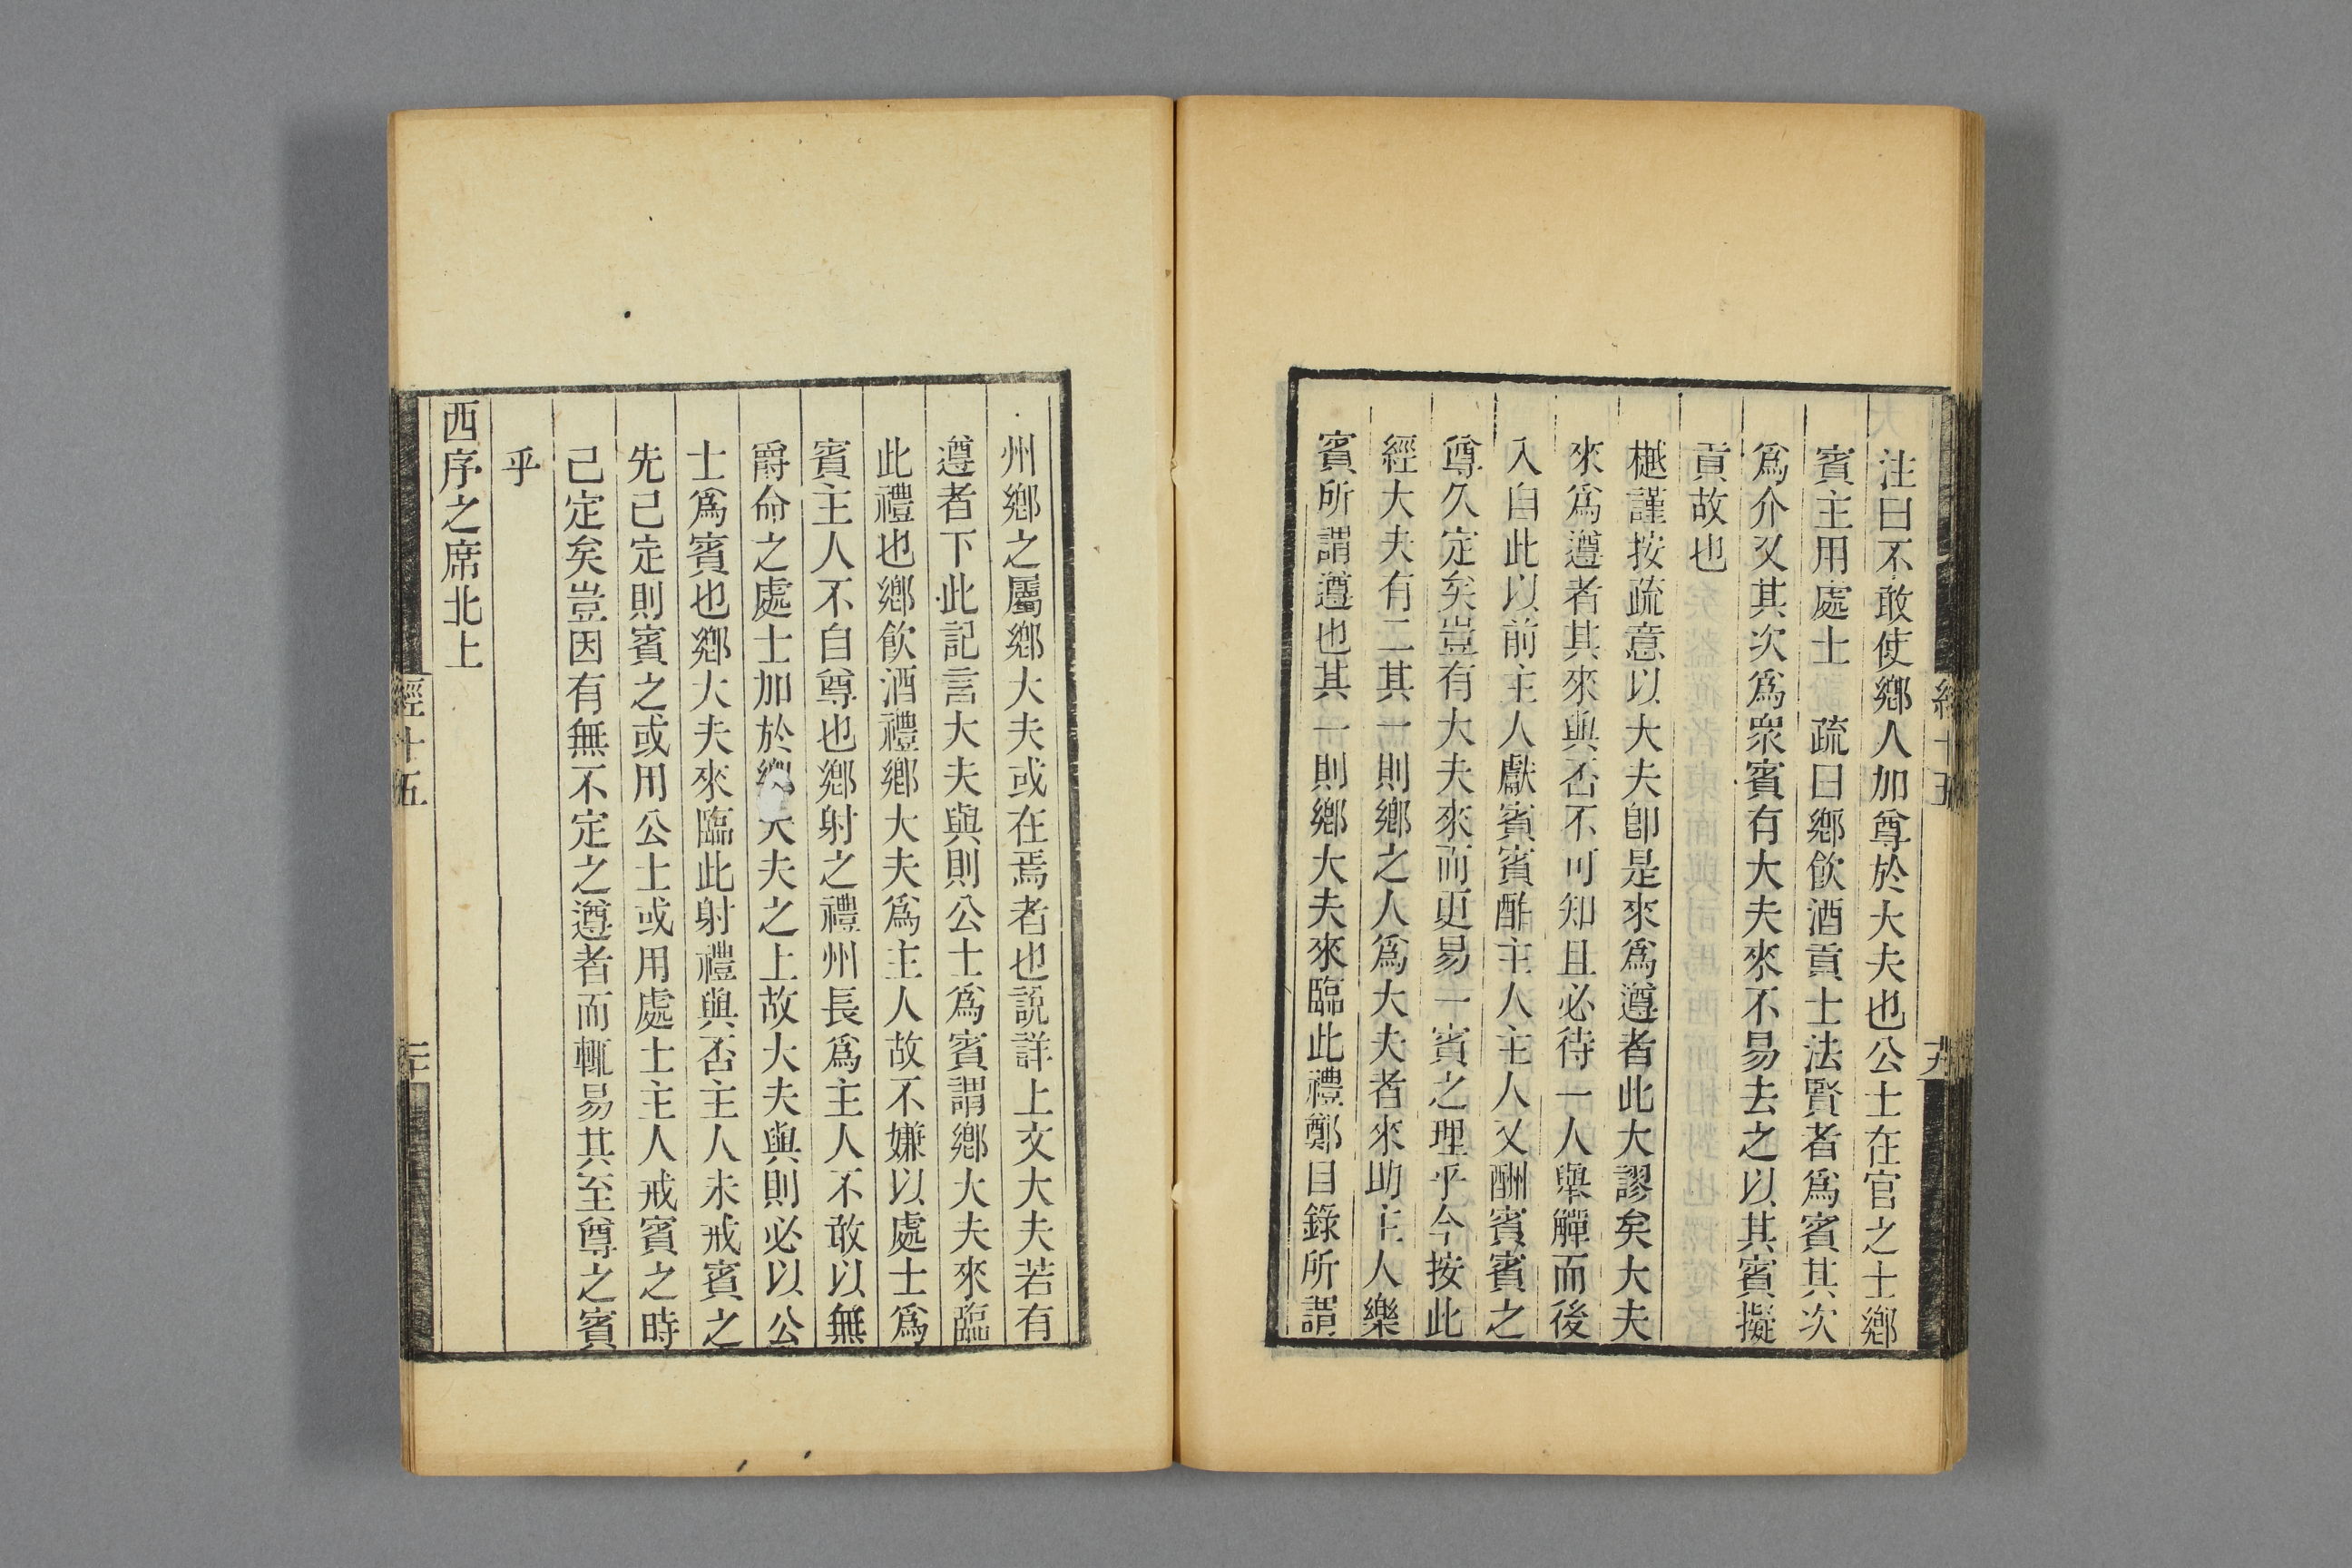 注曰不敢使鄉人加尊於大夫也公士在官之士鄉
賓主用處士　疏曰鄉飲酒貢士法賢者爲賓其次
爲介又其次爲衆賓有大夫來不易去之以其賓擬
貢故也
樾謹按疏意以大夫卽是來爲遵者此大謬矣大夫
來爲遵者其來與否不可知且必待一人舉觶而後
入自此以前主人獻賓賓酢主人主人又酬賓賓之
尊久定矣豈有大夫來而更易一賓之理乎今按此
經大夫有二其一則鄉之人爲大夫者來助主人樂
賓所謂遵也其一則鄉大夫來臨此禮鄭目錄所謂
州鄉之屬鄉大夫或在焉者也說詳上文大夫若有
遵者下此記言大夫與則公士爲賓謂鄉大夫來臨
此禮也鄉飲酒禮鄉大夫爲主人故不嫌以處士爲
賓主人不自尊也鄉射之禮州長爲主人不敢以無
爵命之處士加於鄉大夫之上故大夫與則必以公
士爲賓也鄉大夫來臨此射禮與否主人未戒賓之
先已定則賓之或用公士或用處士主人戒賓之時
已定矣豈因有無不定之遵者而輒易其至尊之賓
乎
西序之席北上
經十五